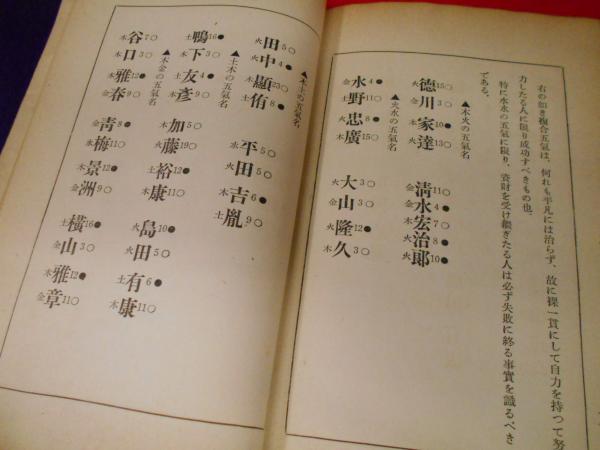 右の如き複合五氣は、何れも平凡には治らず、故に裸一貫にして自力を持つて努
力したる人に限り成功すべきもの也。
特に水水の五氣に限り、資財を受け繼ぎたる人は必ず失敗に終る事實を識るべき
である。
▲木火の五氣名
火德15○ 金川3○ 木家10● 火達13○
金清11○ 金水4● 木宏7○ 火治8● 火郞10●
▲火水の五氣名
金水4● 土野11○ 火忠8● 木廣15○
火大3○ 金山3○ 火隆12● 木久3○
▲木土の五氣名
火田5○ 火中4● 木顯23○ 土侑8●
水平5○ 火田5○ 木吉6● 土胤9○
▲土木の五氣名
土鴨16● 木下3○ 土友4● 木彥9○
木加5○ 火藤19○ 土裕12● 木康11○
火島10● 火田5○ 土有6● 木康11○
▲木金の五氣名
木谷7○ 木口3○ 木雅12● 金春9○
金靑8● 水梅11○ 木景12● 金洲9○
土橫16● 金山3○ 木雅12● 金章11○